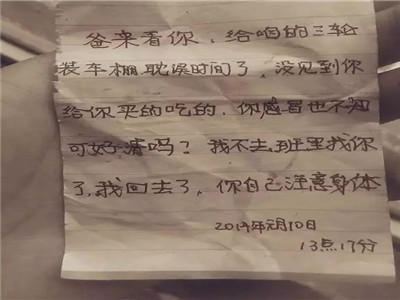 爸来看你,给咱的三轮
装车棚耽误时间了,没见到你
给你买的吃的,你感冒也不知
可好清吗?我不去班里找你
了,我回去了,你自己注意身体
2017年元月10日
13点17分